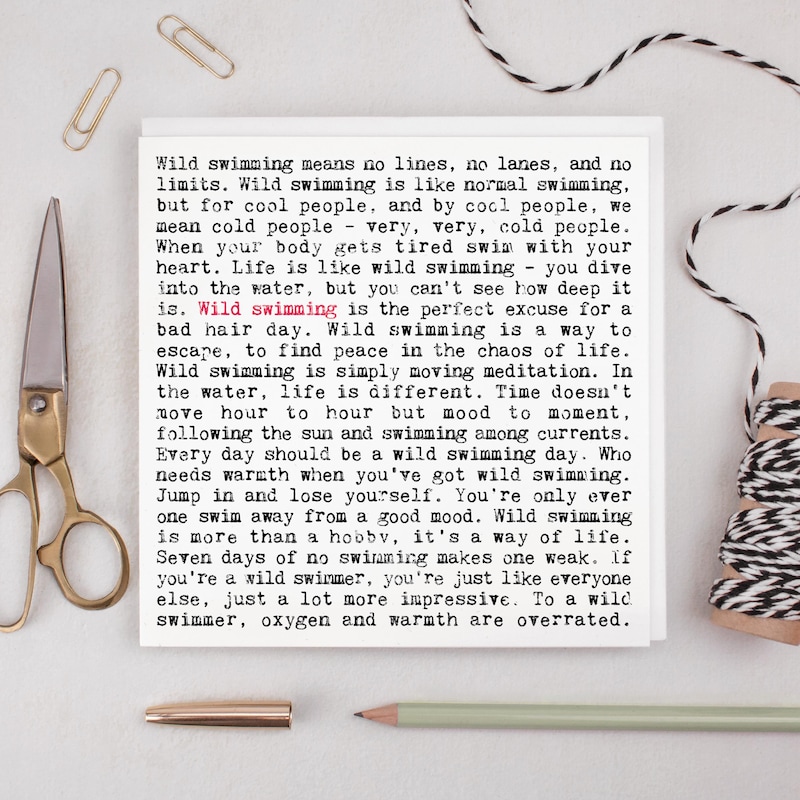 Wild swimming means no lines, no lanes, and no
limits. Wild swimming is like normal swimming,
but for cool people, and by cool people, we
mean cold people - very, very, cold people.
When your body gets tired swim with your
heart. Life is like wild swimming - you dive
into the water, but you can't see how deep it
is. Wild swimming is the perfect excuse for a
bad hair day. Wild swimming is a way to
escape, to find peace in the chaos of life.
Wild swimming is simply moving meditation. In
the water, life is different. Time doesn't
move hour to hour but mood to moment,
following the sun and swimming among currents.
Every day should be a wild swimming day. Who
needs warmth when you've got wild swimming.
Jump in and lose yourself. You're only ever
one swim away from a good mood. Wild swimming
is more than a hobby, it's a way of life.
Seven days of no swimming makes one weak. If
you're a wild swimmer, you're just like everyone
else, just a lot more impressive. To a wild
swimmer, oxygen and warmth are overrated.